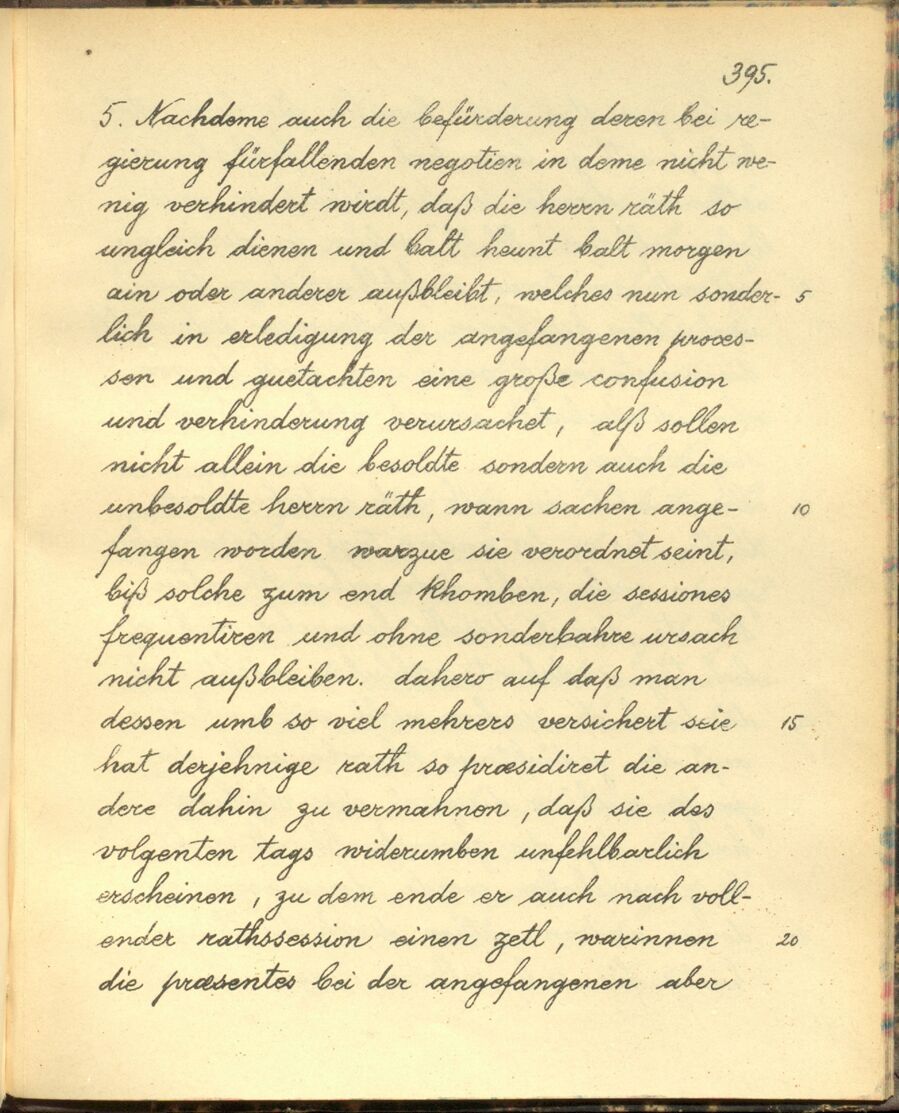 395.
5. Nachdeme auch die befürderung deren bei re-
gierung fürfallenden negotien in deme nicht we-
nig verhindert wirdt, daß die herrn räth so
ungleich dienen und balt heunt balt morgen
ain oder anderer außbleibt, welches nun sonder- 5
lich in erledigung der angefangenen proces-
sen und guetachten eine große confusion
und verhinderung verursachet, alß sollen
nicht allein die besoldte sondern auch die
unbesoldte herrn räth, wann sachen ange- 10
fangen worden warzue sie verordnet seint,
biß solche zum end khomben, die sessiones
frequentiren und ohne sonderbahre ursach
nicht außbleiben. dahero auf daß man
dessen umb so viel mehrers versichert seie 15
hat derjehnige rath so præsidiret die an-
dere dahin zu vermahnen, daß sie des
volgenten tags widerumben unfehlbarlich
erscheinen, zu dem ende er auch nach voll-
ender rathssession einen zetl, warinnen 20
die præsentes bei der angefangenen aber